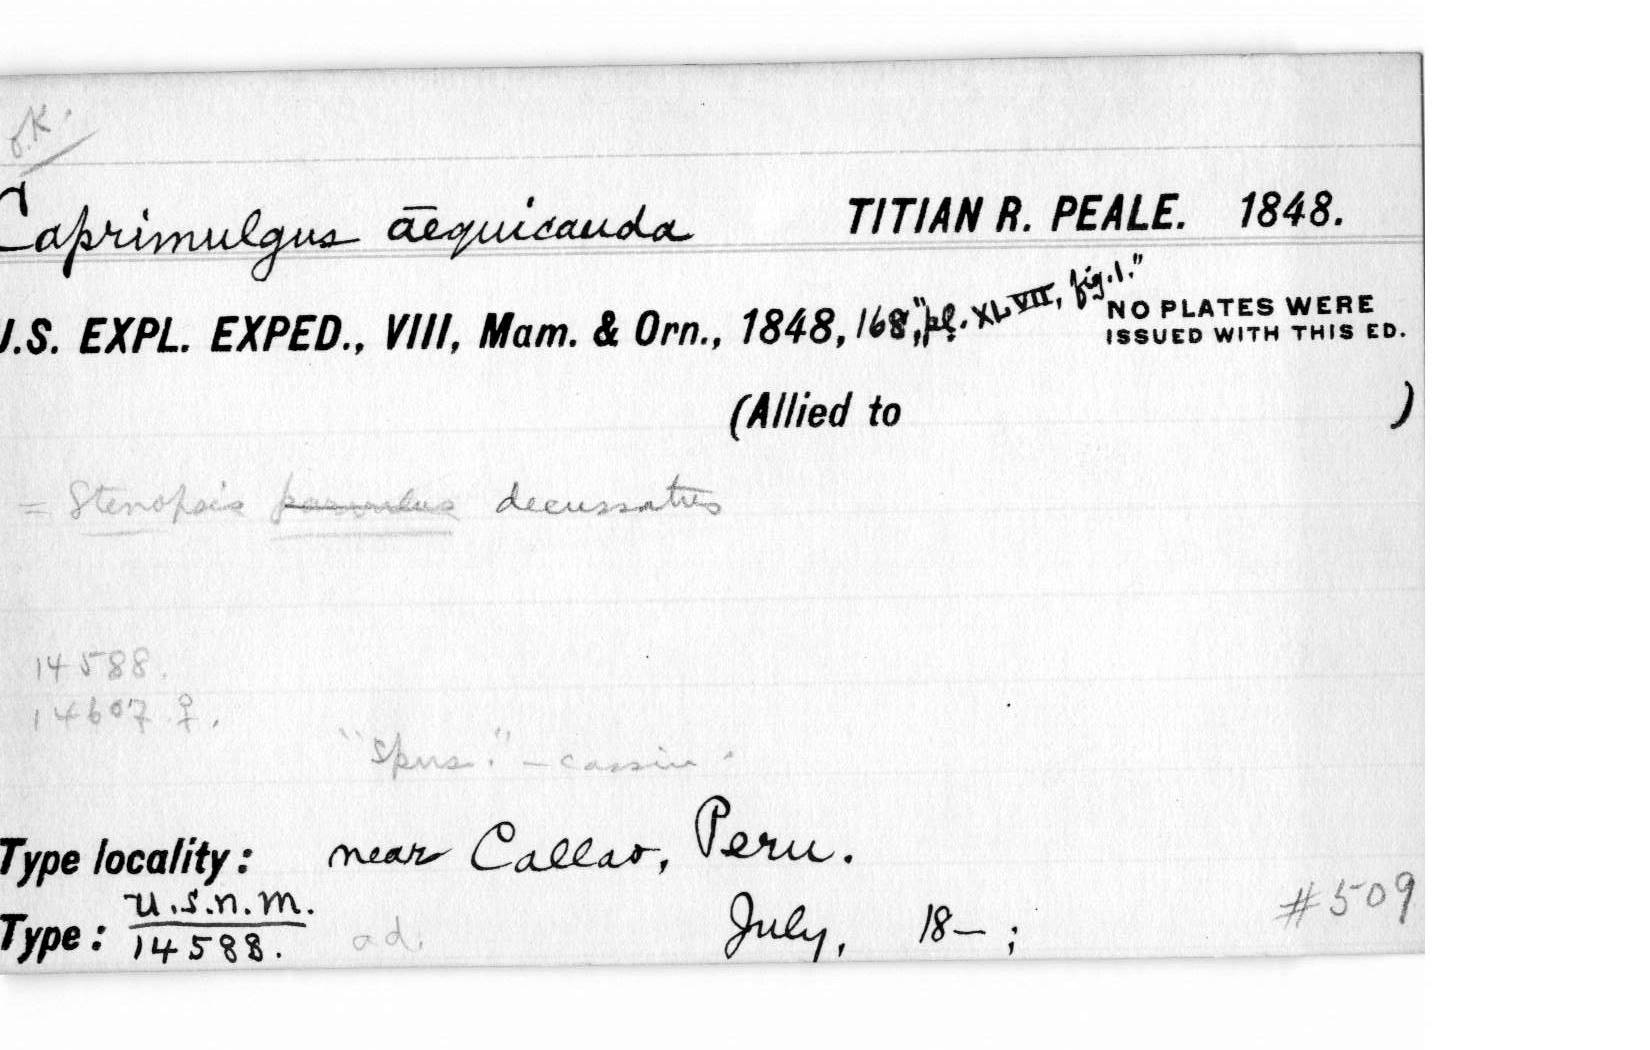 O.K.
Caprimulgus āequicauda TITIAN R. PEALE. 1848.
U.S. EXPL. EXPED., VIII, Mam. & Orn., 1848, 168, "pl. XLVII, fig. 1." NO PLATES WERE
ISSUED WITH THIS ED.
(Allied to )
= Stenopsis parvulus decussatus
14588.
14607 ♀.
"Spus." – Cassin.
Type locality: near Callao, Peru.
Type: U.S.N.M. 14588. ad. July, 18–;
#509